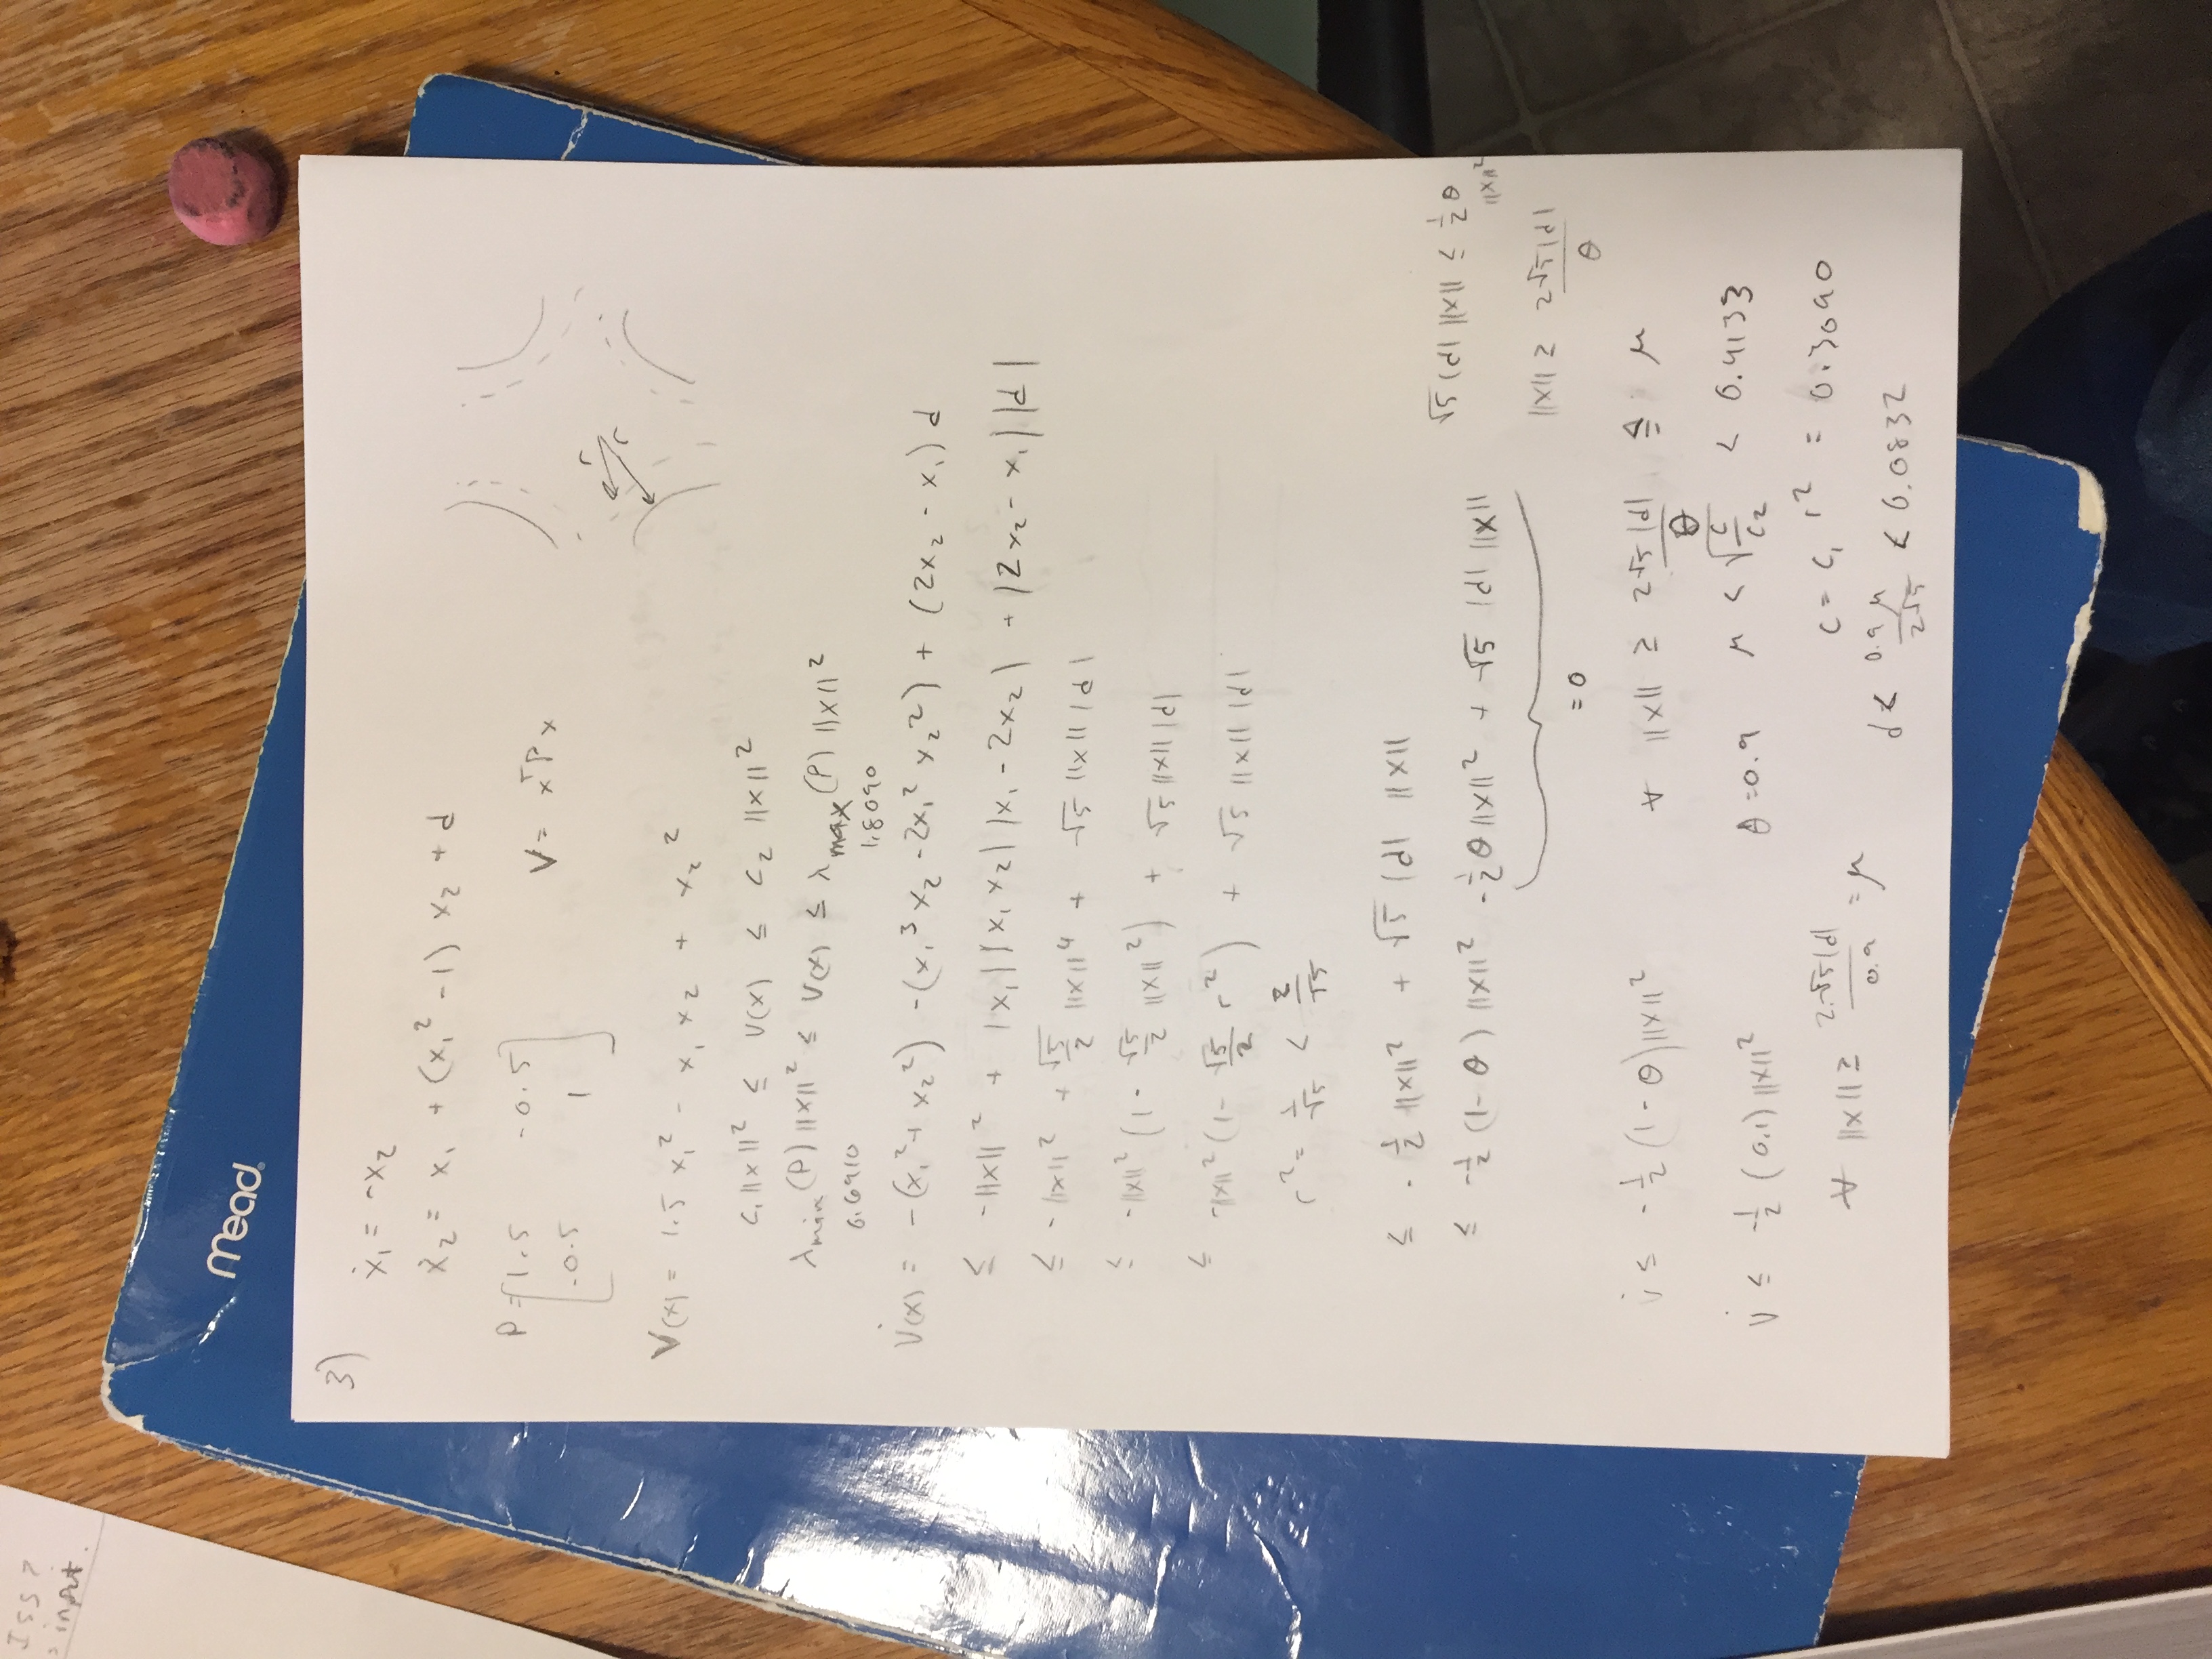 ISS?
input.
mead
3)
ẋ₁ = -x₂
ẋ₂ = x₁ + (x₁² - 1) x₂ + d
P = [1.5 -0.5
-0.5 1]
V = xᵀPx
r
r
V(x) = 1.5 x₁² - x₁ x₂ + x₂²
c₁ ||x||² ≤ V(x) ≤ c₂ ||x||²
λmin (P) ||x||² ≤ V(x) ≤ λmax (P) ||x||²
0.6910 1.8090
V̇(x) = -(x₁² + x₂²) - (x₁³ x₂ - 2x₁² x₂²) + (2x₂ - x₁) d
≤ -||x||² + |x₁| |x₁ x₂| |x₁ - 2x₂| + |2x₂ - x₁| |d|
≤ -||x||² + √5/2 ||x||⁴ + √5 ||x|| |d|
≤ -||x||² (1 - √5/2 ||x||²) + √5 ||x|| |d|
≤ -||x||² (1 - √5/2 r²) + √5 ||x|| |d|
r² = 1/√5 < 2/√5
≤ - 1/2 ||x||² + √5 |d| ||x||
≤ -1/2 (1 - θ) ||x||² - 1/2 θ ||x||² + √5 |d| ||x||
= 0
√5 |d| ||x|| ≤ 1/2 θ ||x||²
||x|| ≥ 2√5 |d| / θ
V̇ ≤ -1/2 (1 - θ) ||x||² ∀ ||x|| ≥ 2√5 |d| / θ ≜ μ
θ = 0.9 μ < √(c/c₂) < 0.4133
V̇ ≤ -1/2 (0.1) ||x||²
c = c₁ r² = 0.3090
∀ ||x|| ≥ 2√5 |d| / 0.9 = μ
d < 0.9 μ / 2√5 < 0.0832